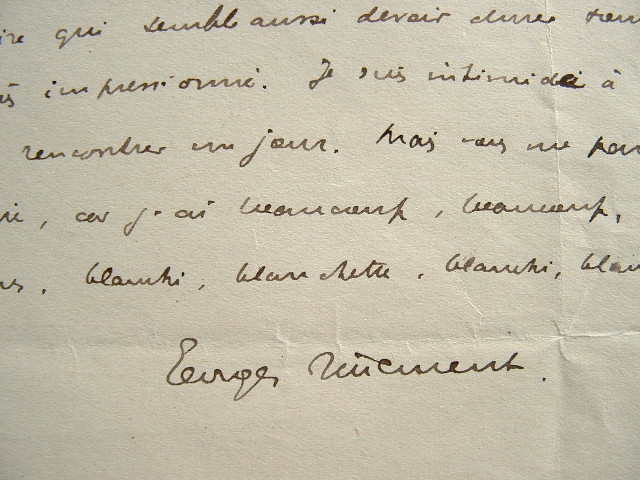 qui semble aussi devoir durer
impressionné. Je suis intimidé à
rencontrer un jour. Mais vous me
, car j'ai beaucoup, beaucoup,
. blanchi, blanchette, blanchi,
Georges